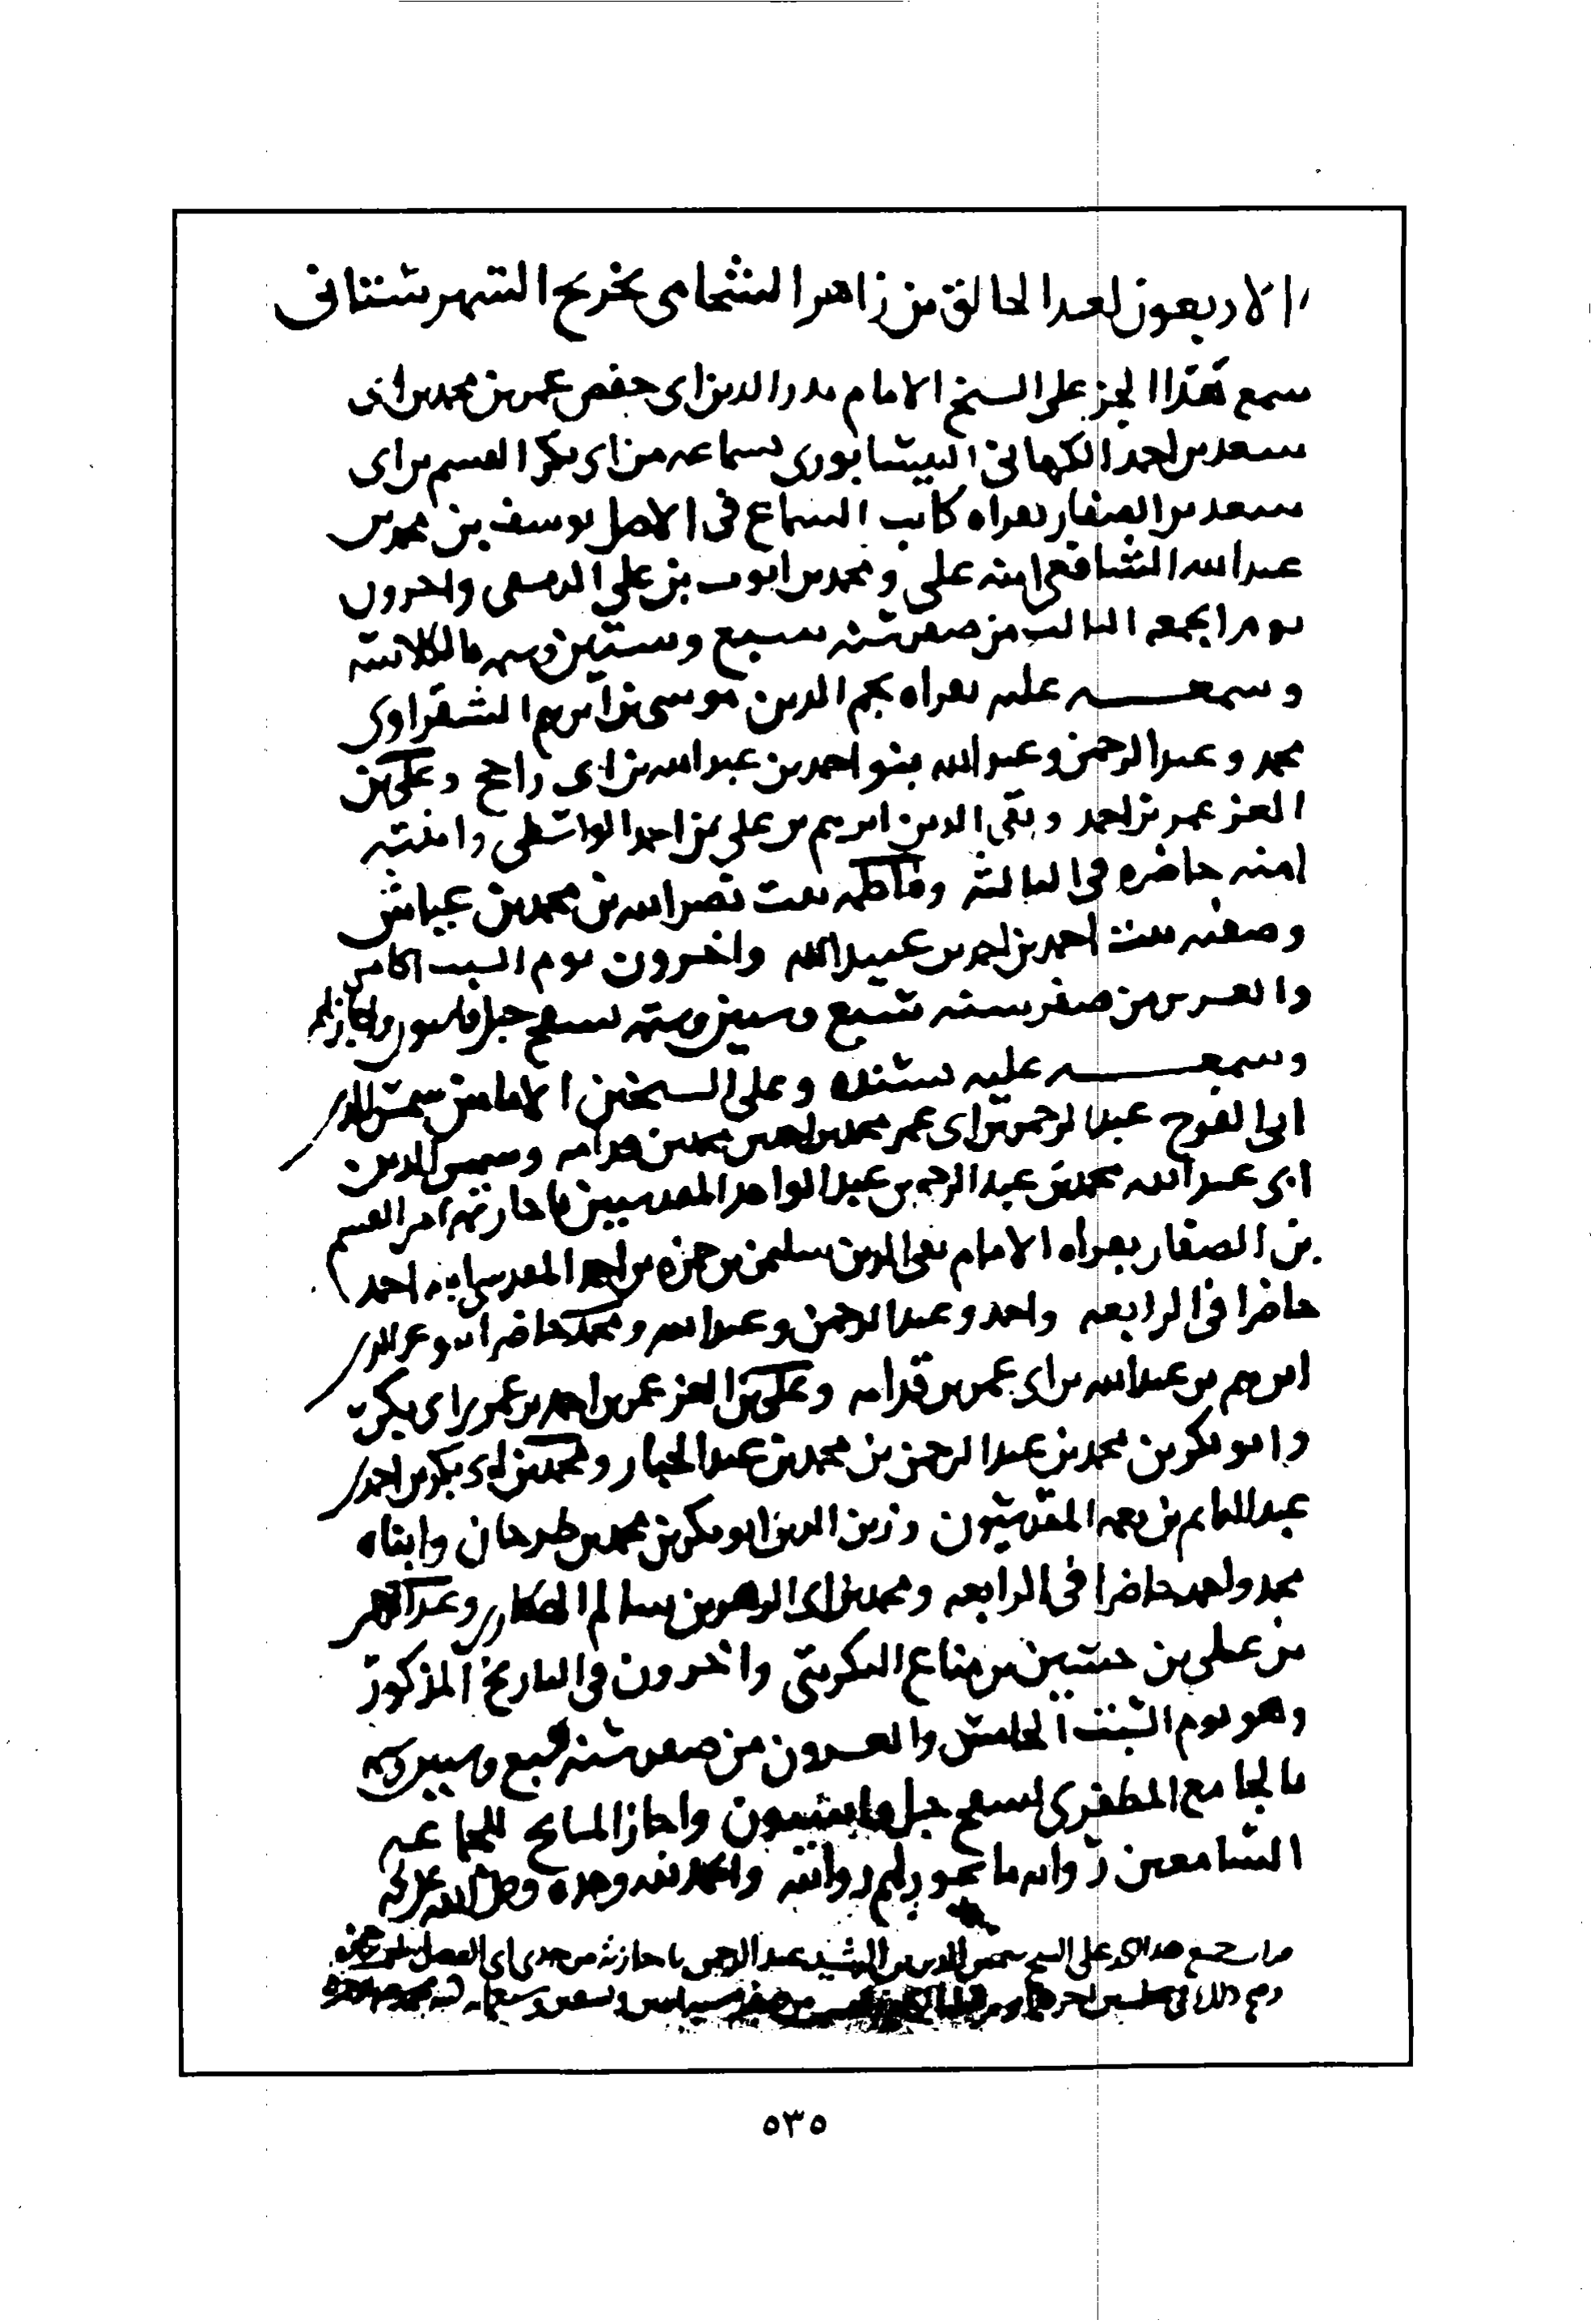 الاربعون لعبد الخالق بن زاهر الشحامي تخريج الشهرستاني
سمع هذا الجز على الشيخ الامام بدر الدين ابي حفص عمر بن محمد بن ابي
سعد بن احمد الكرماني النيسابوري بسماعه من ابي بكر القسم بن ابي
سعد بن الصفار بقراه كاتب السماع في الاصل يوسف بن محمد بن
عبد الله الشافعي ابنه علي ومحمد بن ايوب بن علي الدمشقي واخرون
يوم الجمعه الثالث من صفر سنه سبع وستين وستمه بالكلاسه
وسمعه عليه بقراه نجم الدين موسى بن ابرهيم الشقراوي
محمد وعبد الرحمن وعبد الله بنو احمد بن عبد الله بن ابي راجح وعلي بن
العز عمر بن احمد وتقي الدين ابرهيم بن علي بن احمد الواسطي وابنته
امنه حاضره في الثالثه وفاطمه بنت نصر الله بن محمد بن عياش
وصفيه بنت احمد بن احمد بن عبيد الله واخرون يوم السبت الخامس
والعشرين من صفر سنه سبع وستين وستمه بسفح جبل قاسيون واجاز لهم
وسمعه عليه بسنده وعلى الشيخين الامامين شمس الدين
ابي الفرج عبد الرحمن بن ابي عمر محمد بن احمد بن محمد بن قدامه وشمس الدين
ابي عبد الله محمد بن عبد الرحيم بن عبد الواحد المقدسيين باجازتهما من القسم
بن الصفار بقراه الامام تقي الدين سليمن بن حمزه بن احمد المقدسي ابنه احمد
حاضرا في الرابعه واحمد وعبد الرحمن وعبد الله ومحمد حاضرا بنو عز الدين
ابرهيم بن عبد الله بن ابي عمر بن قدامه وعلي بن العز عمر بن احمد بن عمر بن ابي بكر
وابو بكر بن محمد بن عبد الرحمن بن محمد بن عبد الجبار ومحمد بن ابي بكر بن احمد بن
عبد الدايم بن نعمه المقدسيون وزين الدين ابو بكر بن محمد بن طرخان وابناه
محمد واحمد حاضرا في الرابعه ومحمد بن ابي الزهر بن سالم
بن علي بن حسين بن مناع التكريتي واخرون في التاريخ المذكور
وهو يوم السبت الخامس والعشرون من صفر سنه سبع وستين وستمه
بالجامع المظفري بسفح جبل قاسيون واجاز المشايخ للجماعه
السامعين روايه ما يجوز لهم روايته والحمد لله وحده وصلى الله على
قرات جميع هذا الجز على الشيخ شمس الدين بن الرشيد عبد الرحمن باجازته من جدي ابي الفضل سليمن بن حمزه
وصح ذلك في مجلسين اخرهما
٥٣٥